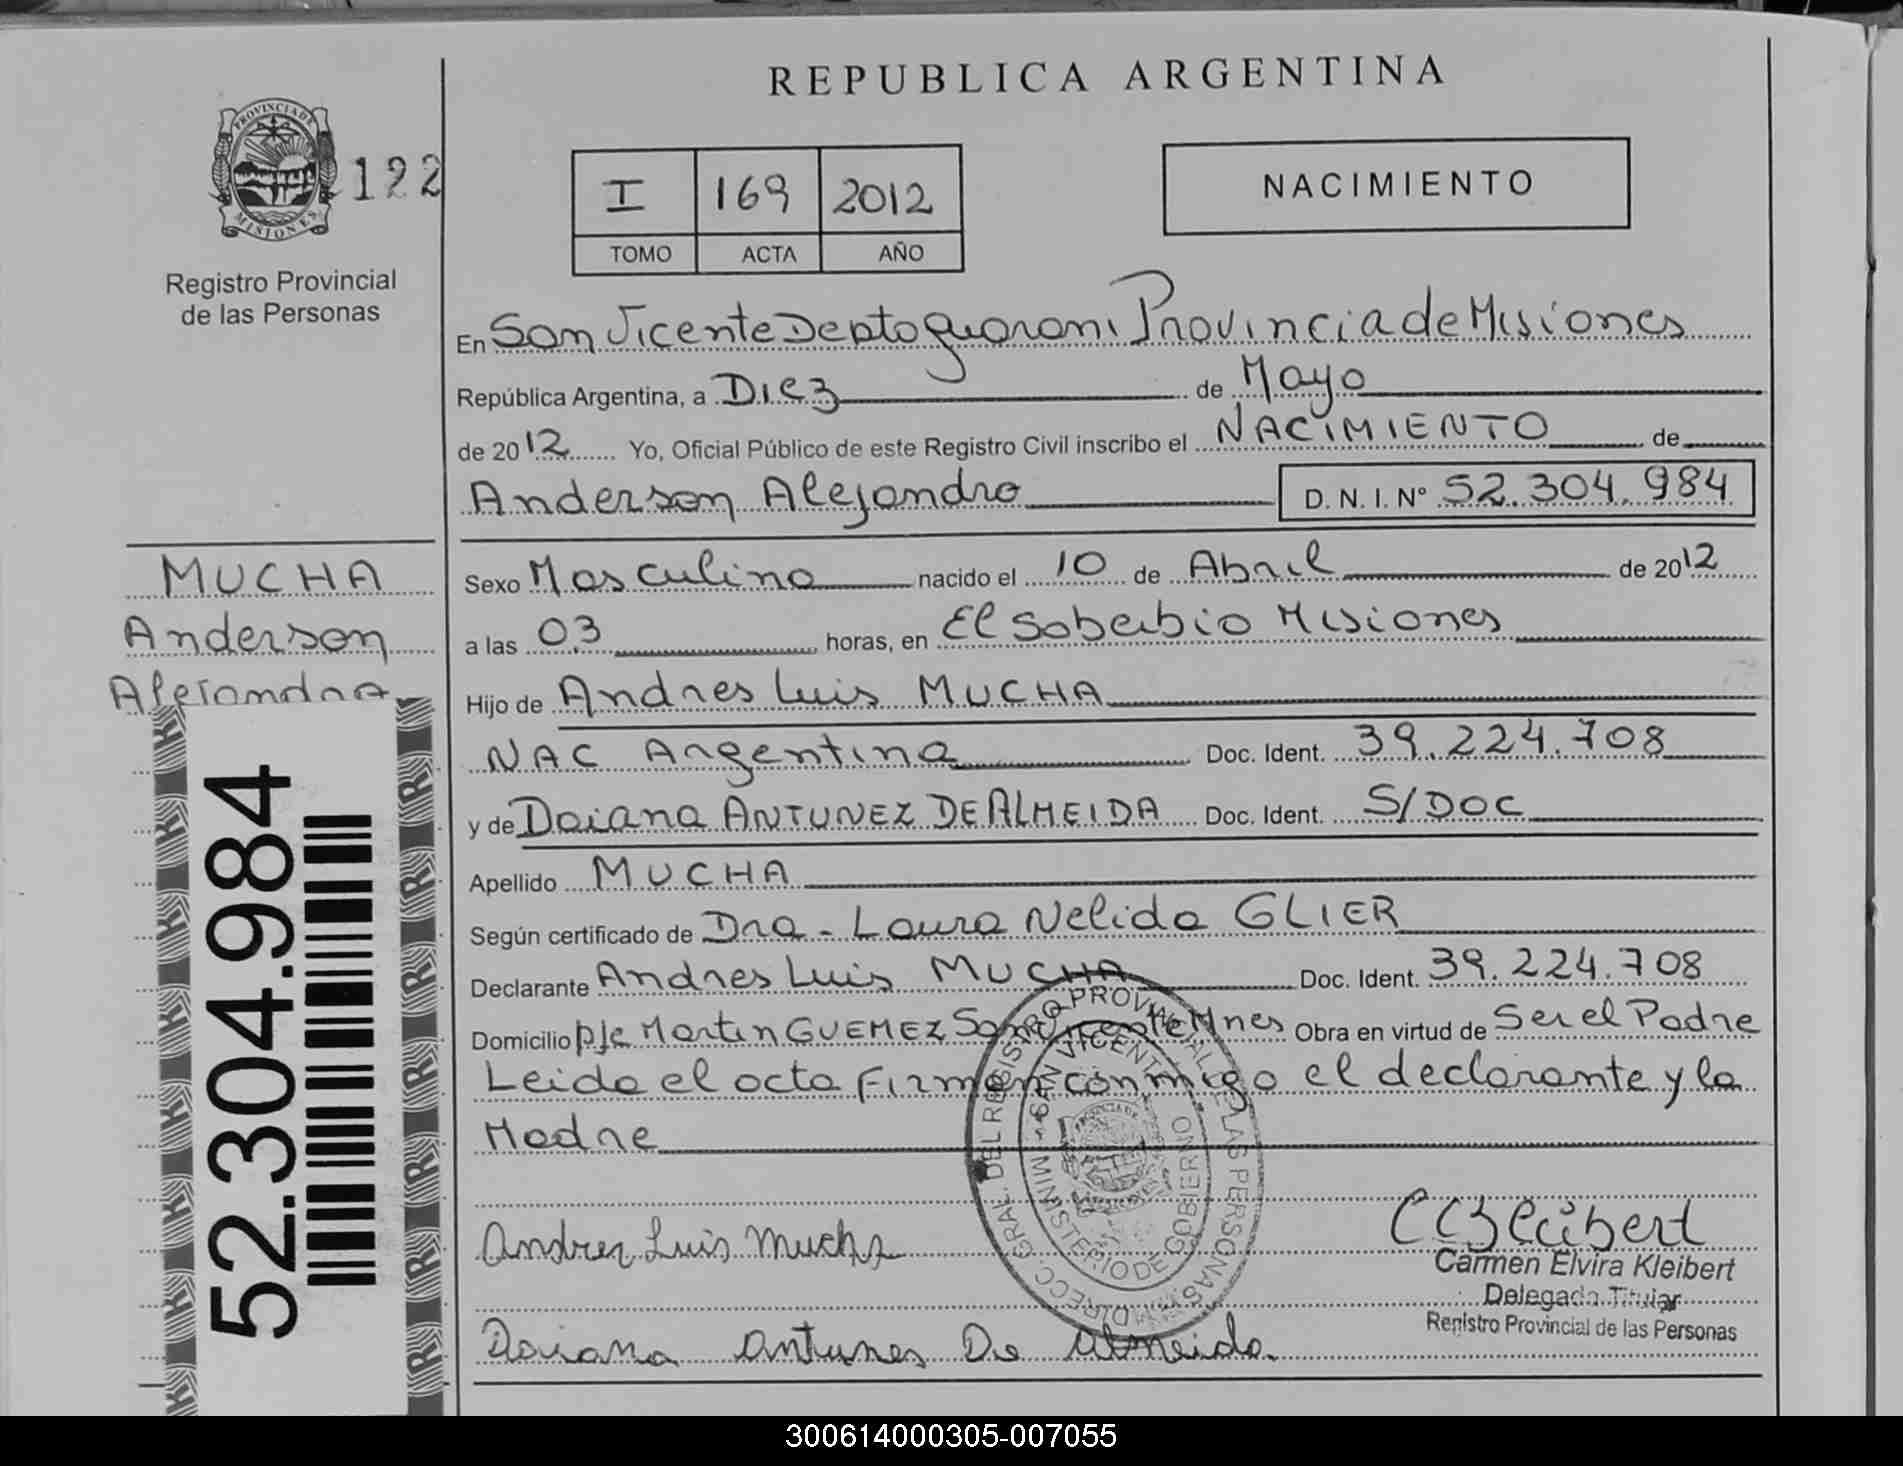 REPUBLICA ARGENTINA
PROVINCIA DE
MISIONES
122
Registro Provincial
de las Personas
I 169 2012
TOMO ACTA AÑO
NACIMIENTO
En San Vicente Depto guarani Provincia de Misiones
República Argentina, a Diez de Mayo
de 2012 Yo, Oficial Público de este Registro Civil inscribo el NACIMIENTO de
Anderson Alejandro D. N. I. Nº 52.304.984
MUCHA
Anderson
Alejandro
52.304.984
Sexo Masculino nacido el 10 de Abril de 2012
a las 03 horas, en El Soberbio Misiones
Hijo de Andres Luis MUCHA
NAC Argentina Doc. Ident. 39.224.708
y de Daiana ANTUNEZ DE ALMEIDA Doc. Ident. S/DOC
Apellido MUCHA
Según certificado de Dra - Laura Nelida GLIER
Declarante Andres Luis MUCHA Doc. Ident. 39.224.708
Domicilio pje Martin GUEMEZ San Vicente Mnes Obra en virtud de Ser el Padre
Leida el acta Firman conmigo el declarante y la
Madre
DIRECC. GRAL. DEL REGISTRO PROVINCIAL DE LAS PERSONAS
SAN VICENTE
MINISTERIO DE GOBIERNO
Andres Luis Mucha
CCKleibert
Carmen Elvira Kleibert
Delegada Titular
Registro Provincial de las Personas
Daiana Antunes De Almeida
300614000305-007055